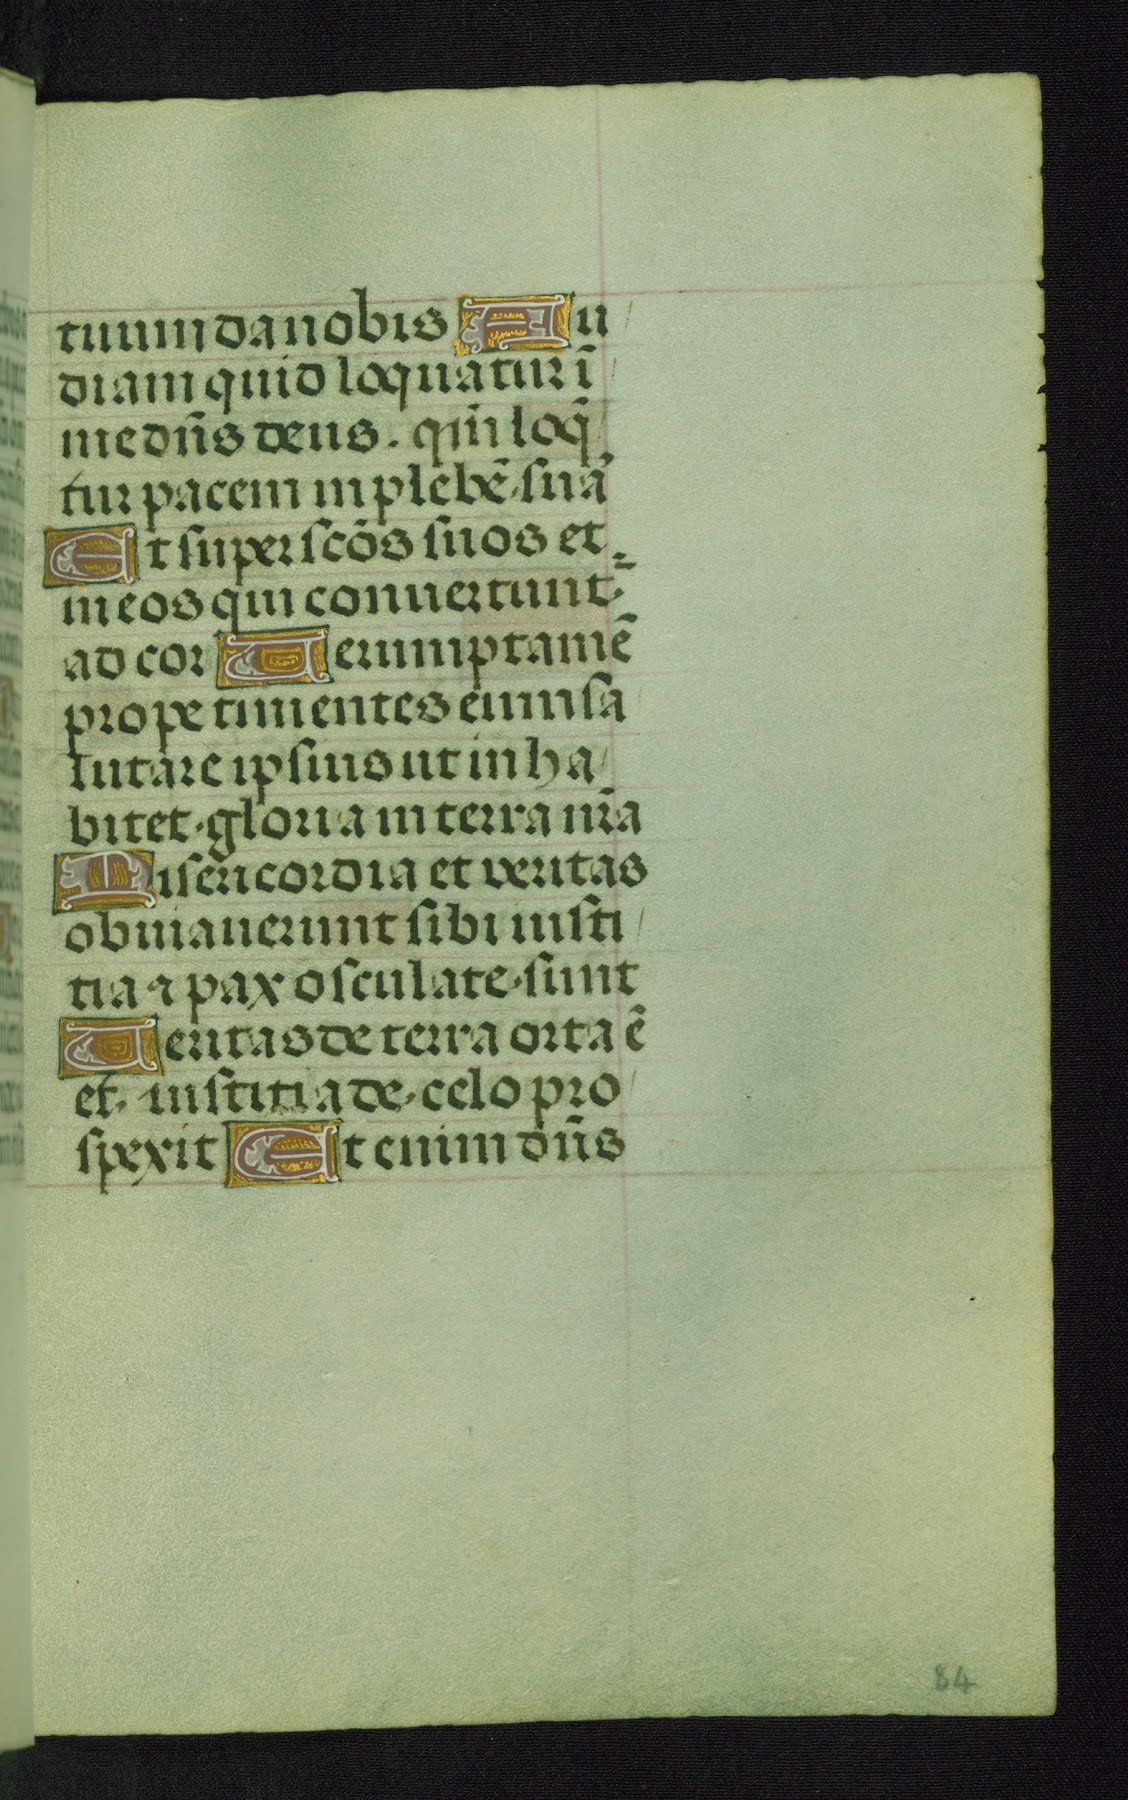 tuum da nobis Au
diam quid loquatur ī
me dn̄s deus. qm̄ loq̄
tur pacem in plebē suā
Et super scōs suos et
in eos qui conuertunt
ad cor Uerumptamē
prope timentes eum sa
lutare ipsius ut inha
bitet gloria in terra nr̄a
Misericordia et veritas
obuiauerunt sibi iusti
tia ⁊ pax osculate sunt
Ueritas de terra orta ē
et iustitia de celo pro
spexit Etenim dn̄s
84